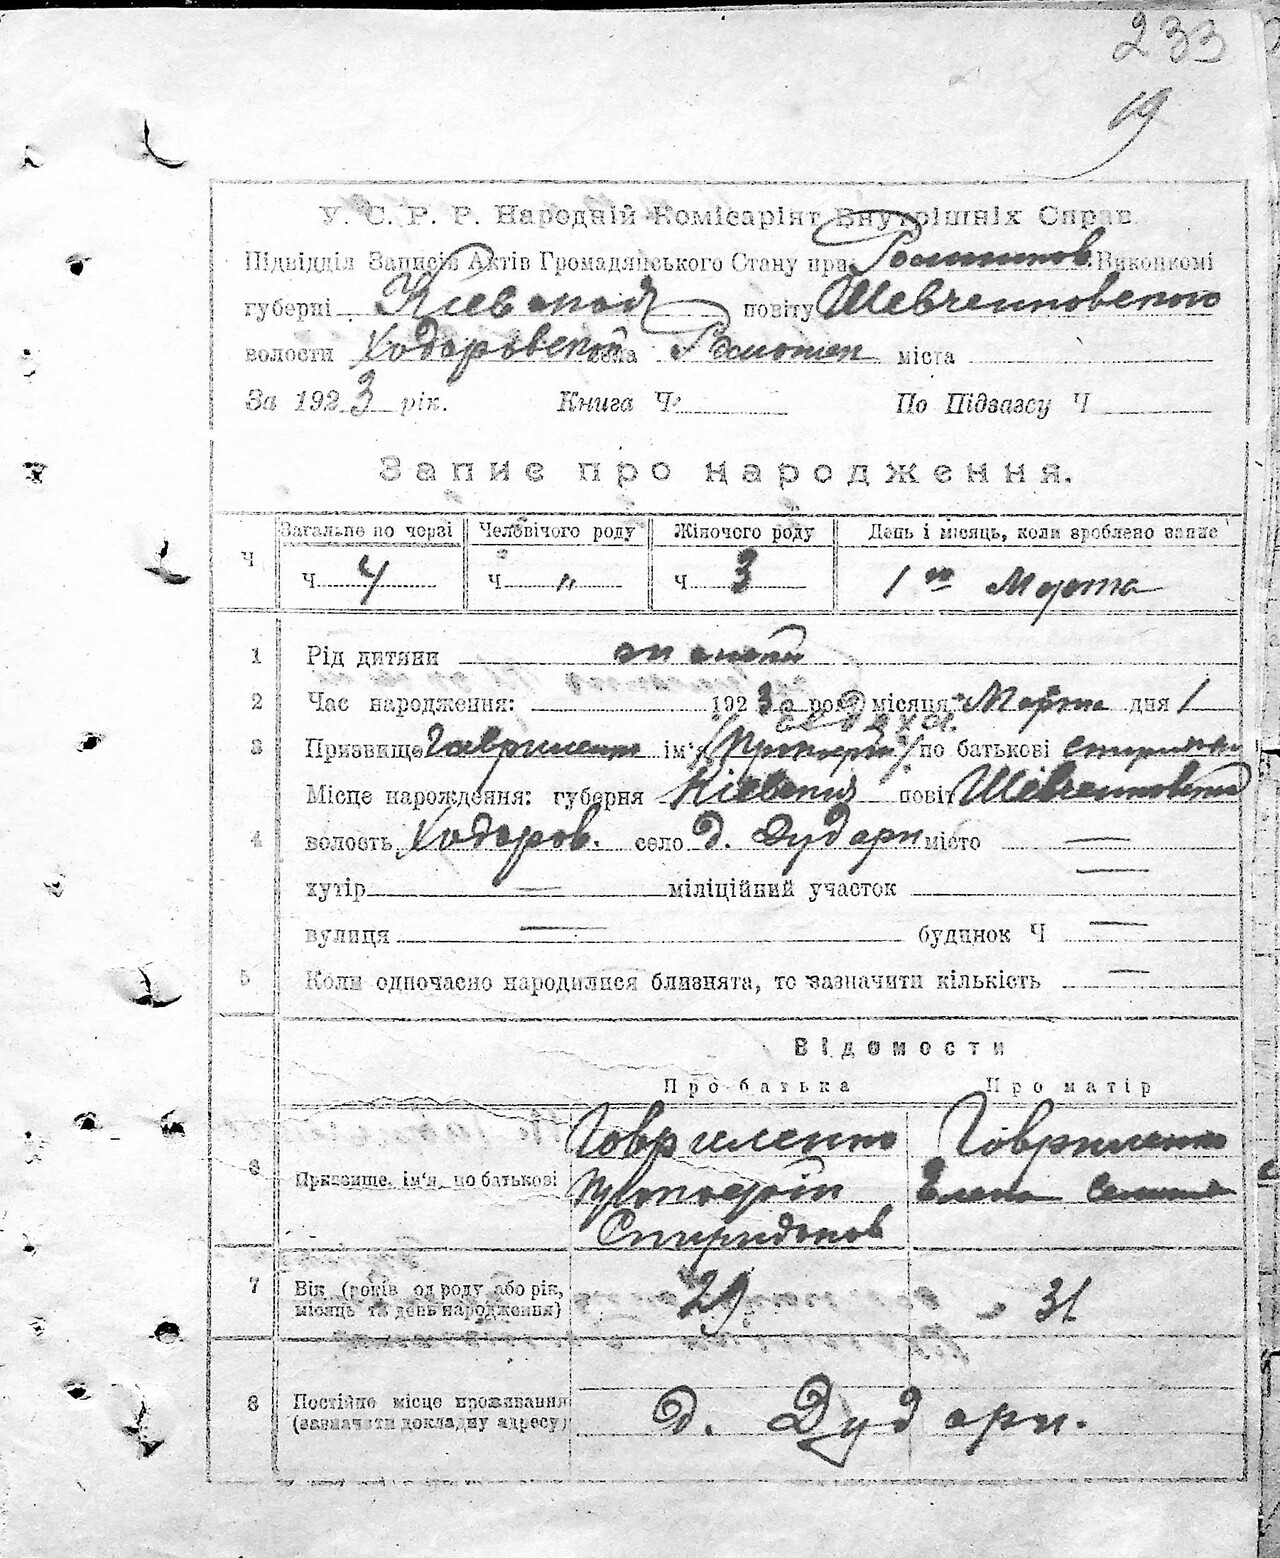 233
19
У. С. Р. Р. Народній Комісаріят Внутрішніх Справ
Підвідділ Записів Актів Громадянського Стану при Виконкомі
губерні Кіевской повіту Шевченковского
волости Ходоровской села міста
За 1923 рік. Книга Ч. По Підзагсу Ч
Запис про народження.
Ч Загальне по черзі Человічого роду Жіночого роду День і місяць, коли зроблено запис
Ч 4 Ч " Ч 3 1го Марта
1 Рід дитяни женский
2 Час народження: 1923 року місяця Марта дня 1
Евдоха
3 Призвище Гавриленко ім'я (Прокофій) по батькові
Місце народження: губерня Кіевская повіт Шевченковский
4 волость Ходоров. село д. Дудари місто —
хутір — міліційний участок —
вулиця — будинок Ч —
5 Коли одночасно народилися близнята, то зазначити кількість —
Відомости
Про батька Про матір
6 Призвище, ім'я, по батькові Гавриленко Гавриленко
Прокофій Елена
Спиридонов
7 Вік (років од роду або рік, місяць та день народження) 29 31
8 Постійне місце проживання (зазначити докладну адресу) д. Дудари.